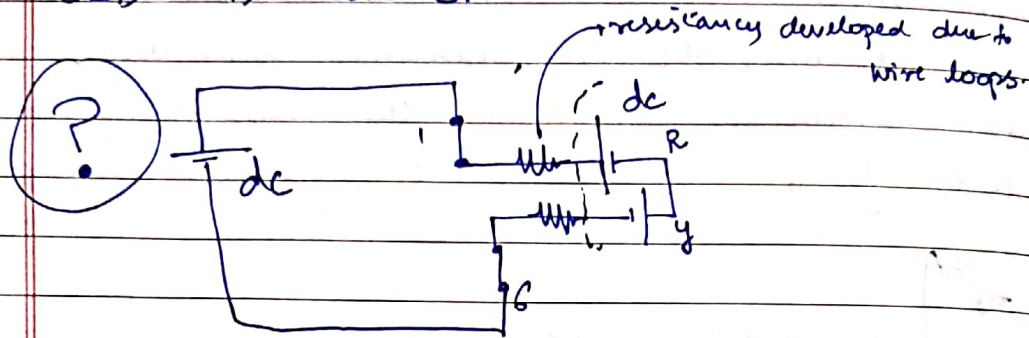 resistancy developed due to
wire loops.
?
dc
dc
R
y
1
6